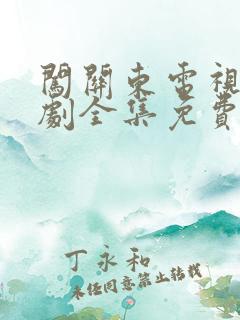 闖關東電視
劇全集免費
丁永和
未經同意禁止轉載